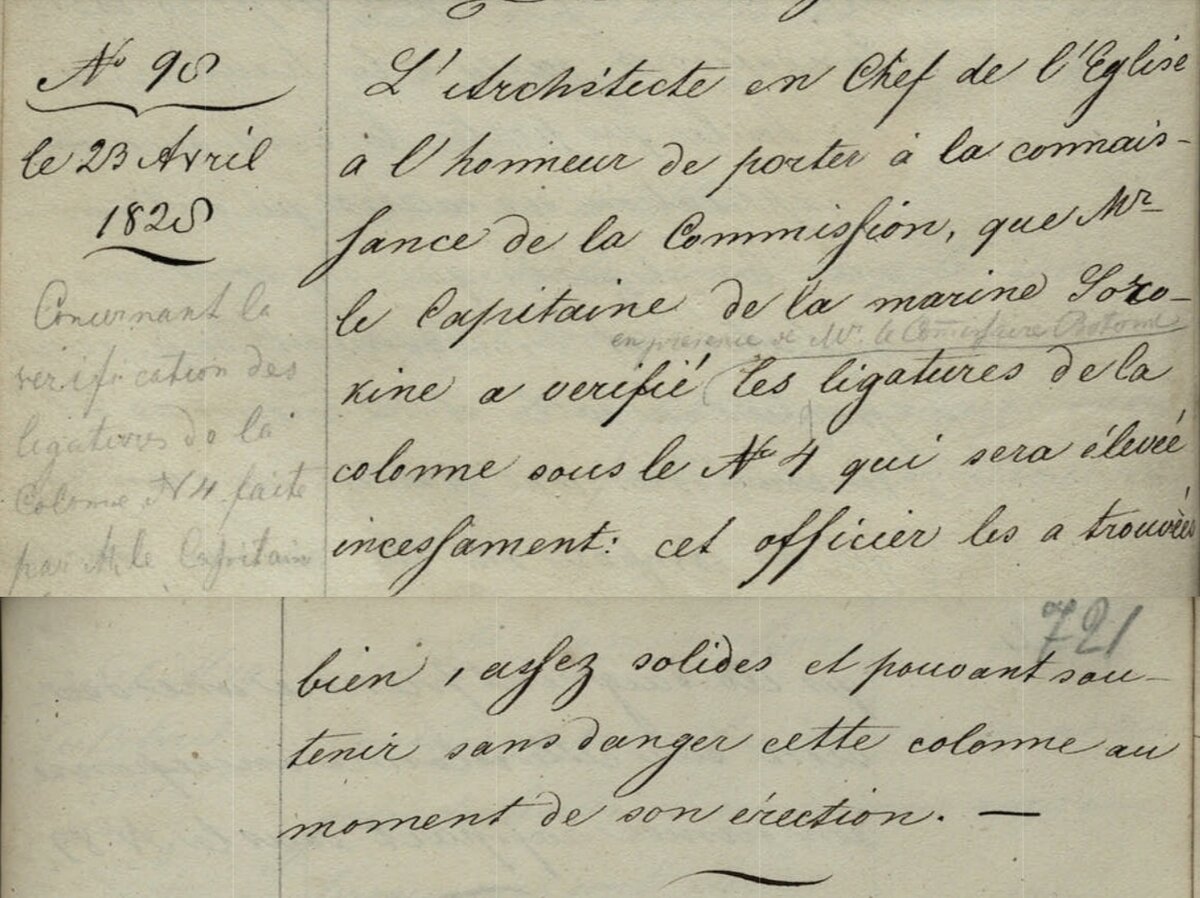 No 98
le 23 Avril
1828
Concernant la
verification des
ligatures de la
Colonne N 4 faite
par Mr le Capitain
L'Architecte en Chef de l'Eglise
à l'honneur de porter à la connais-
sance de la Commission, que Mr
le Capitaine de la marine Soro-
en présence de Mr. le Comissaire
kine a verifié (les ligatures de la
colonne sous le No 4 qui sera élevée
incessament: cet officier les a trouvées
721
bien, assez solides et pouvant sou-
tenir sans danger cette colonne au
moment de son érection. —